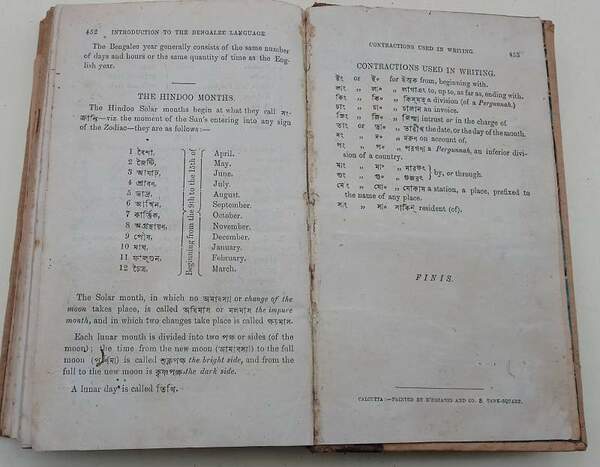 452 INTRODUCTION TO THE BENGALEE LANGUAGE
The Bengalee year generally consists of the same number
of days and hours or the same quantity of time as the Eng-
lish year.
THE HINDOO MONTHS.
The Hindoo Solar months begin at what they call সং-
ক্রান্তি—viz the moment of the Sun's entering into any sign
of the Zodiac—they are as follows:—
1 বৈশা. April.
2 জ্যৈষ্ঠ. May.
3 আষাঢ়. June.
4 শ্রাবণ. July.
5 ভাদ্র. August.
6 আশ্বিন. September.
7 কার্ত্তিক. October.
8 অগ্রহায়ণ. November.
9 পৌষ. December.
10 মাঘ. January.
11 ফাল্গুন. February.
12 চৈত্র. March.
Beginning from the 9th to the 15th of
The Solar month, in which no অমাবস্যা or change of the
moon takes place, is called অধিমাস or মলমাস the impure
month, and in which two changes take place is called ক্ষয়মাস.
Each lunar month is divided into two পক্ষ or sides (of the
moon); the time from the new moon (অমাবস্যা) to the full
moon (পূর্ণিমা) is called শুক্লপক্ষ the bright side, and from the
full to the new moon is কৃষ্ণপক্ষ the dark side.
A lunar day is called তিথি.
CONTRACTIONS USED IN WRITING. 453
CONTRACTIONS USED IN WRITING.
ইং or ই৹ for ইস্তক from, beginning with.
লাং „ লা৹ „ লাগাএৎ to, up to, as far as, ending with.
কিং „ কি৹ „ কিসমৎ a division (of a Pergunnah.)
চাং „ চা৹ „ চালান an invoice.
জিং „ জি৹ „ জিম্মা intrust or in the charge of.
তাং „ তা৹ „ তারীখ the date, or the day of the month.
দং „ দ৹ „ দরুণ on account of.
পং „ প৹ „ পরগণা a Pergunnah, an inferior divi-
sion of a country.
মাং „ মা৹ „ মারফৎ
গুং „ গু৹ „ গুজরৎ } by, or through.
মোং „ মো৹ „ মোকাম a station, a place, prefixed to
the name of any place.
সাং „ সা৹ „ সাকিন্ resident (of).
FINIS.
CALCUTTA:—PRINTED BY AND CO. 8, TANK-SQUARE.